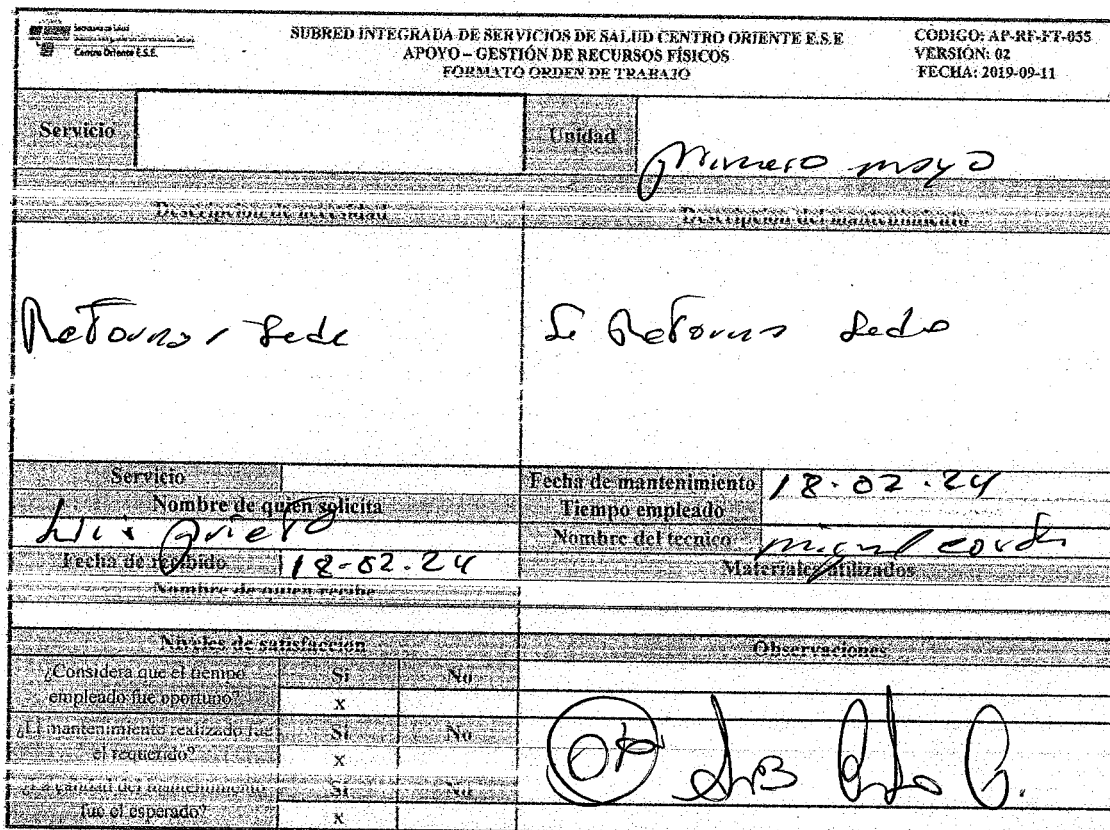 Secretaría de Salud
Centro Oriente E.S.E.
SUBRED INTEGRADA DE SERVICIOS DE SALUD CENTRO ORIENTE E.S.E
APOYO – GESTIÓN DE RECURSOS FÍSICOS
FORMATO ORDEN DE TRABAJO
CODIGO: AP-RF-FT-055
VERSIÓN: 02
FECHA: 2019-09-11
Servicio
Unidad
primero mayo
Descripción de necesidad
Descripcion del mantenimiento
Retornar Sede
Se Retorna Sede
Servicio
Nombre de quien solicita
Luis Prieto
Fecha de recibido 18-02-24
Nombre de quien recibe
Fecha de mantenimiento 18-02-24
Tiempo empleado
Nombre del tecnico miguel
Materiales utilizados
Niveles de satisfacción
Observaciones
¿Considera que el tiempo empleado fue oportuno?
Si No
x
¿El mantenimiento realizado fue el requerido?
Si No
x
¿La calidad del mantenimiento fue el esperado?
Si No
x
OK